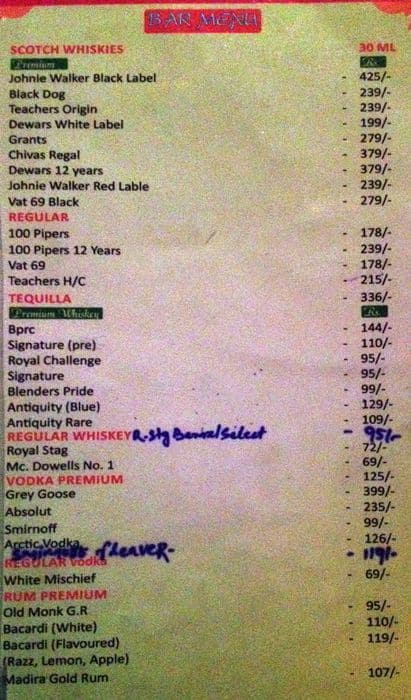 BAR MENU
SCOTCH WHISKIES 30 ML
Premium Rs.
Johnie Walker Black Label - 425/-
Black Dog - 239/-
Teachers Origin - 239/-
Dewars White Label - 199/-
Grants - 279/-
Chivas Regal - 379/-
Dewars 12 years - 379/-
Johnie Walker Red Lable - 239/-
Vat 69 Black - 279/-
REGULAR
100 Pipers - 178/-
100 Pipers 12 Years - 239/-
Vat 69 - 178/-
Teachers H/C - 215/-
TEQUILLA - 336/-
Premium Whiskey Rs.
Bprc - 144/-
Signature (pre) - 110/-
Royal Challenge - 95/-
Signature - 95/-
Blenders Pride - 99/-
Antiquity (Blue) - 129/-
Antiquity Rare - 109/-
REGULAR WHISKEY R-Stg Select - 95/-
Royal Stag - 72/-
Mc. Dowells No. 1 - 69/-
VODKA PREMIUM - 125/-
Grey Goose - 399/-
Absolut - 235/-
Smirnoff - 99/-
Arctic Vodka - 126/-
of Leaver- - 119/-
REGULAR vodka
White Mischief - 69/-
RUM PREMIUM
Old Monk G.R - 95/-
Bacardi (White) - 110/-
Bacardi (Flavoured) - 119/-
(Razz, Lemon, Apple)
Madira Gold Rum - 107/-